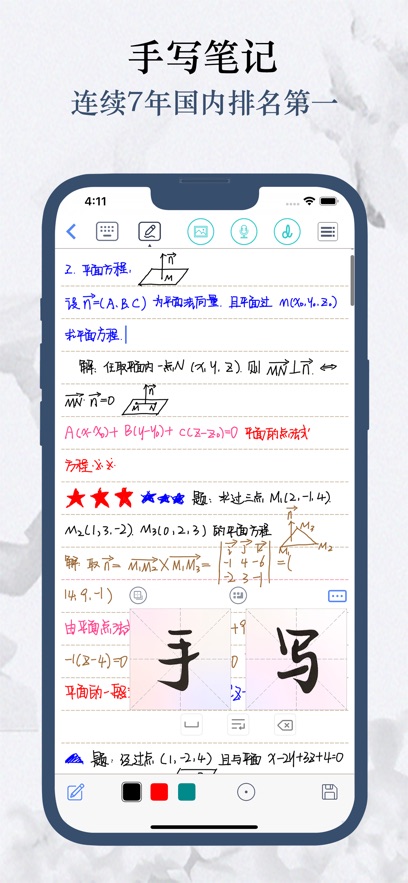 手写笔记
连续7年国内排名第一
4:11
2. 平面方程.
n M
设 n=(A.B.C) 为平面法向量. 且平面过 M(x₀,y₀,z₀)
求平面方程.
解: 任取平面内一点N (x,y,z). 则 MN⊥n. ⇔
MN·n=0 n M N
A(x-x₀)+ B(y-y₀)+ C(z-z₀)=0 平面的点法式
方程
题: 求过三点 M₁(2,-1,4).
M₂(-1,3,-2). M₃(0,2,3) 的平面方程
n M₁ M₂ M₃
解 取 n= M₁M₂ × M₁M₃ = | i j k | = (
-3 4 -6
-2 3 -1
14,9,-1)
由平面点法式 +9
-1(z-4)=0 0
平面的一般式
手 写
题: 经过点 (1,-2,4) 且与平面 x-2y+3z+4=0